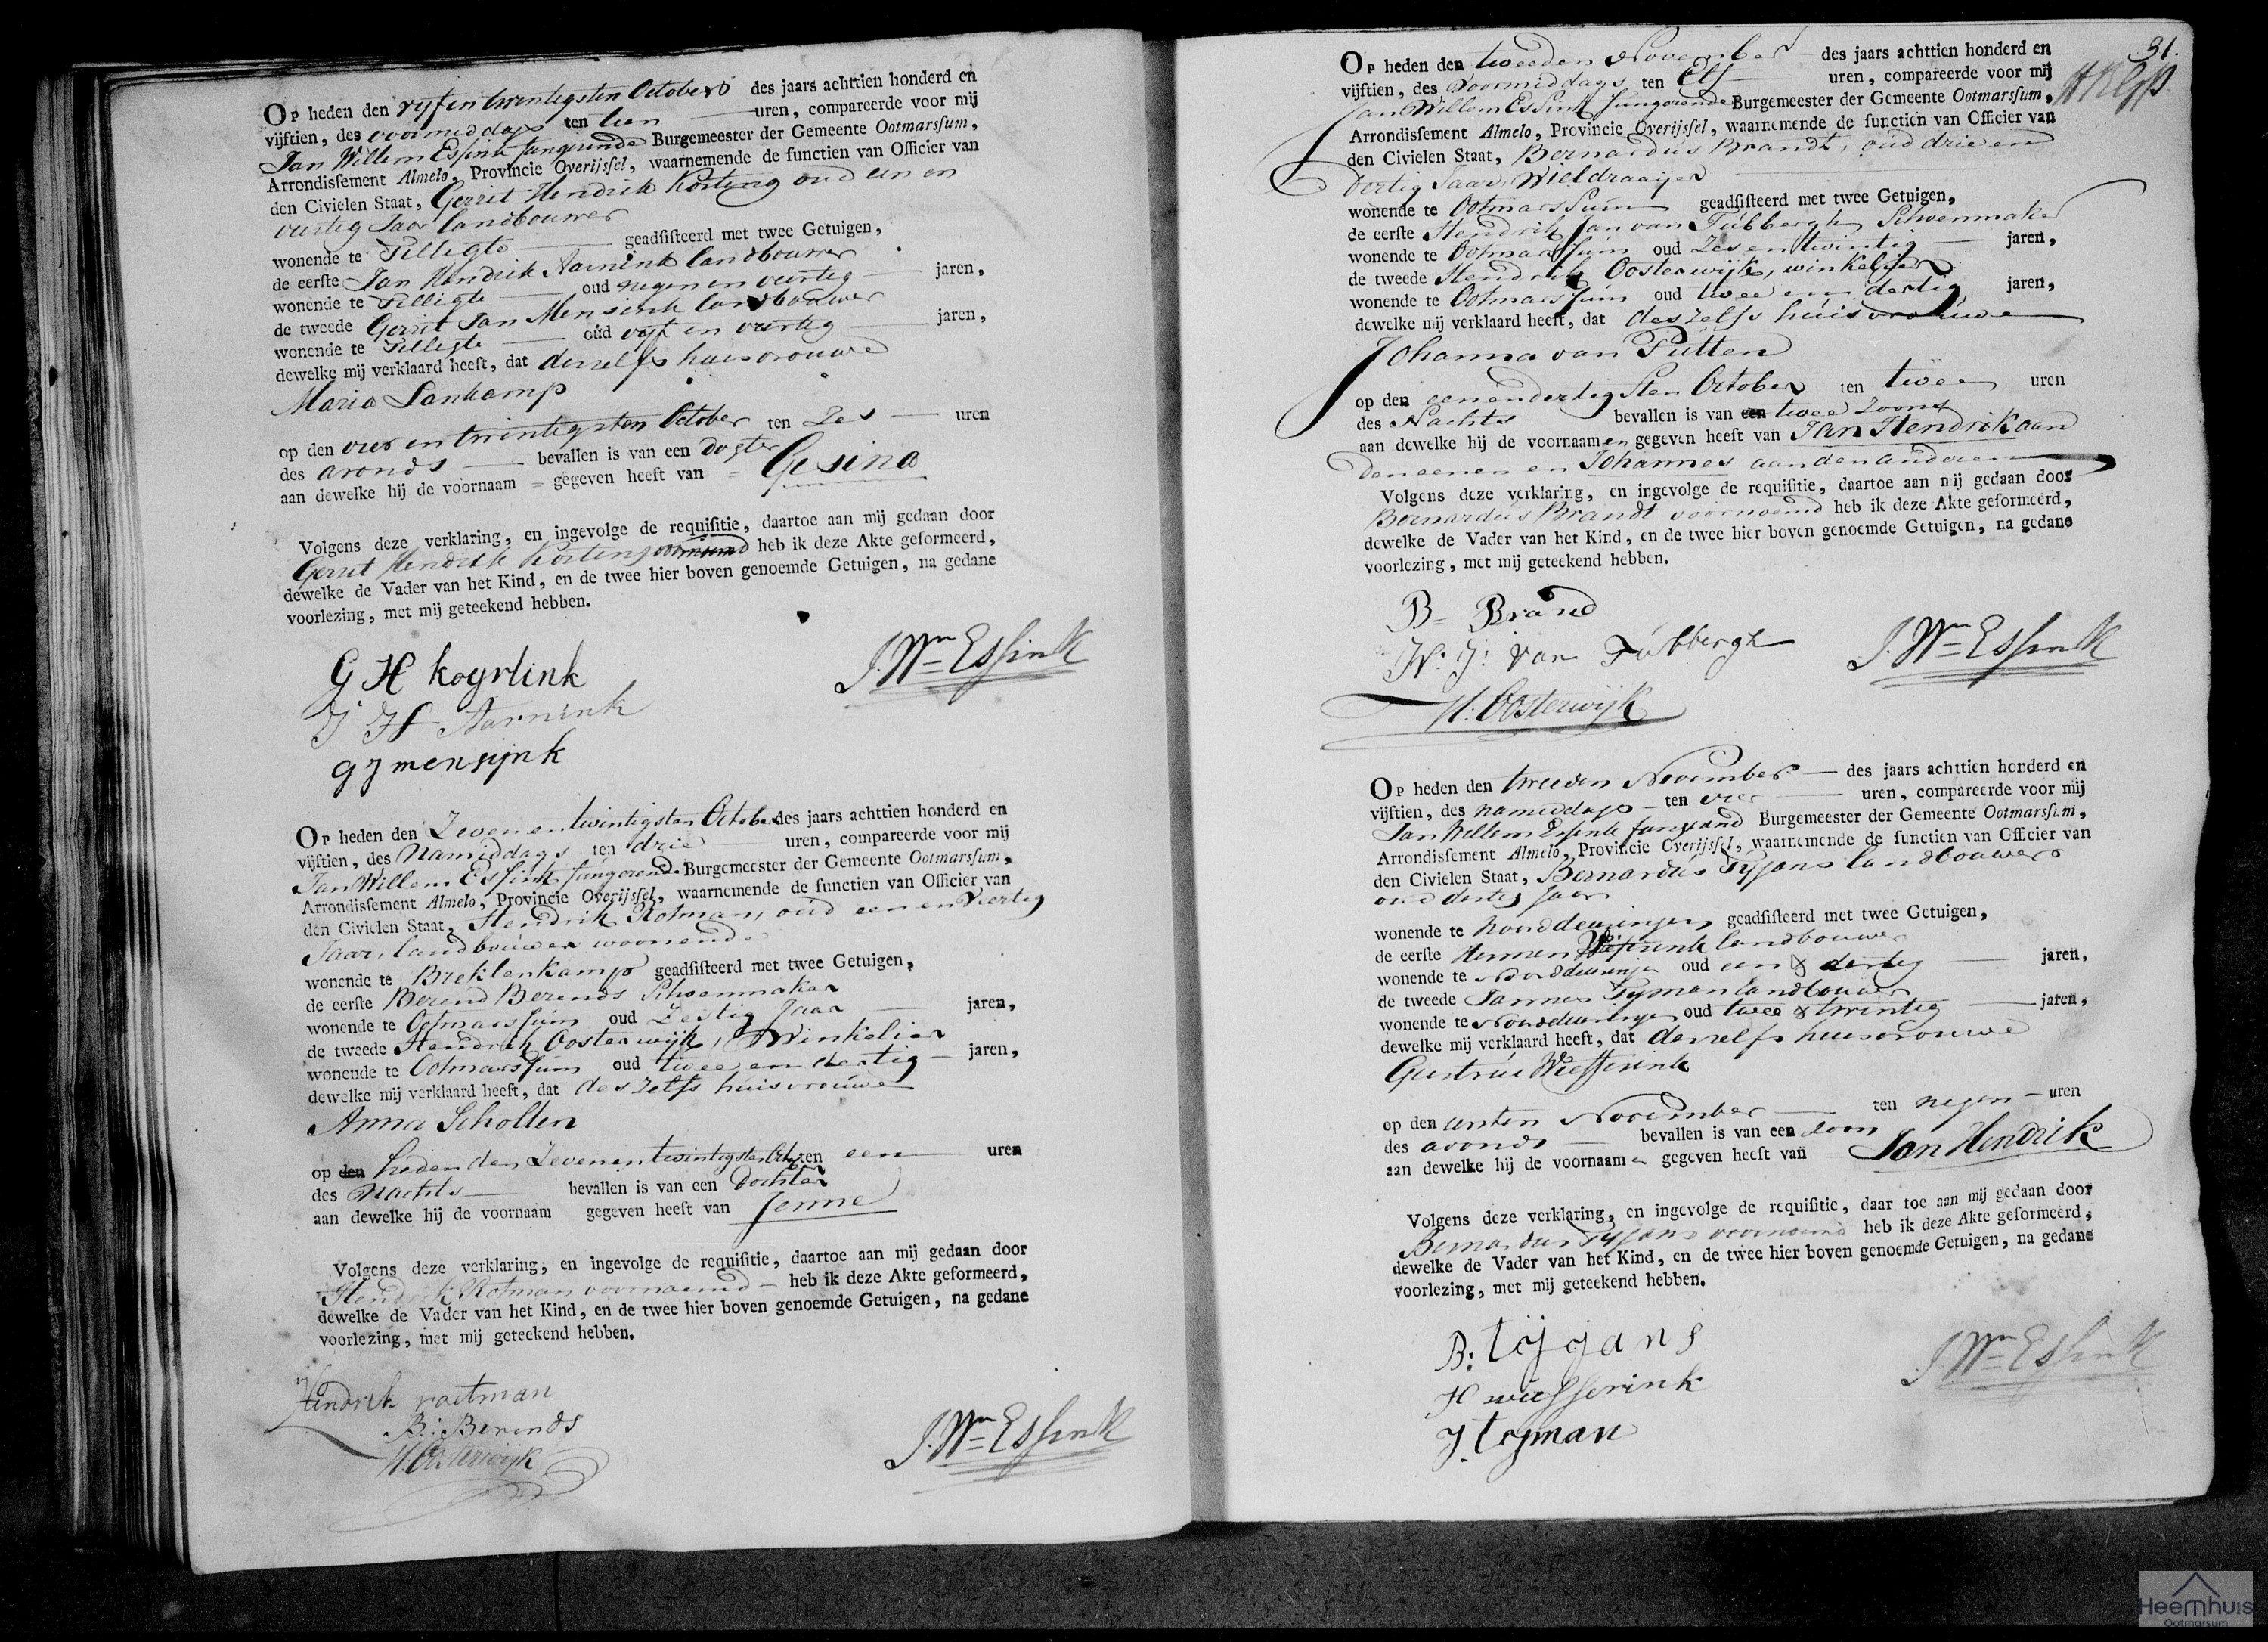 Op heden den vyf en twentigsten October des jaars achttien honderd en
vijftien, des voormiddags ten tien uren, compareerde voor mij
Jan Willem Essink fungerende Burgemeester der Gemeente Ootmarsſum,
Arrondisſement Almelo, Provincie Overijsſel, waarnemende de functien van Officier van
den Civielen Staat, Gerrit Hendrik Korting oud een en
veertig Jaar landbouwer
wonende te Tilligte geadſiſteerd met twee Getuigen,
de eerſte Jan Hendrik Aarnink landbouwer
wonende te Tilligte oud negen en veertig jaren,
de tweede Gerrit Jan Mensink landbouwer
wonende te Tilligte oud vyf en veertig jaren,
dewelke mij verklaard heeft, dat deszelfs huisvrouwe
Maria Lankamp
op den vier en twintigsten October ten Zes uren
des avonds bevallen is van een dogter
aan dewelke hij de voornaam = gegeven heeft van = Gesina
Volgens deze verklaring, en ingevolge de requiſitie, daartoe aan mij gedaan door
Gerrit Hendrik voornoemd heb ik deze Akte geformeerd,
dewelke de Vader van het Kind, en de twee hier boven genoemde Getuigen, na gedane
voorlezing, met mij geteekend hebben.
G H koyrlink
J. Wm Essink
J H Aarnink
g J mensijnk
Op heden den Zeven en twintigsten October des jaars achttien honderd en
vijftien, des Namiddags ten drie uren, compareerde voor mij
Jan Willem Essink fungerend Burgemeester der Gemeente Ootmarsſum,
Arrondisſement Almelo, Provincie Overijsſel, waarnemende de functien van Officier van
den Civielen Staat, Hendrik Rotman, oud een en Veertig
Jaar, landbouwer woonende
wonende te Breklenkamp geadſiſteerd met twee Getuigen,
de eerſte Berend Berends Schoenmaker
wonende te Ootmarssum oud Zestig Jaar jaren,
de tweede Hendrik Oosterwijk, Winkelier
wonende te Ootmarssum oud twee en dertig jaren,
dewelke mij verklaard heeft, dat deszelfs huisvrouwe
Anna Scholten
op den heden den Zeven en twintigsten Octr ten een uren
des Nachts bevallen is van een dochter
aan dewelke hij de voornaam gegeven heeft van Jenne
Volgens deze verklaring, en ingevolge de requiſitie, daartoe aan mij gedaan door
Hendrik Rotman voornoemd heb ik deze Akte geformeerd,
dewelke de Vader van het Kind, en de twee hier boven genoemde Getuigen, na gedane
voorlezing, met mij geteekend hebben.
Hindrik roetman
B: Berends
H. Oosterwijk
J. Wm Essink
31.
Op heden den tweeden November des jaars achttien honderd en
vijftien, des Voormiddags ten Elf uren, compareerde voor mij
Jan Willem Essink fungerende Burgemeester der Gemeente Ootmarsſum,
Arrondisſement Almelo, Provincie Overijsſel, waarnemende de functien van Officier van
den Civielen Staat, Bernardus Brandt, oud drie en
dertig Jaar, Wieldraaijer
wonende te Ootmarssum geadſiſteerd met twee Getuigen,
de eerſte Hendrik Jan van Tubbergh Schoenmaker
wonende te Ootmarssum oud Zes en twintig jaren,
de tweede Hendrik Oosterwijk, winkelier
wonende te Ootmarssum oud twee en dertig jaren,
dewelke mij verklaard heeft, dat deszelfs huisvrouwe
Johanna van Putten
op den een en dertigsten October ten twee uren
des Nachts bevallen is van een twee Zoons
aan dewelke hij de voornaamen gegeven heeft van Jan Hendrik aan
den eenen en Johannes aan den anderen
Volgens deze verklaring, en ingevolge de requiſitie, daartoe aan mij gedaan door
Bernardus Brandt voornoemd heb ik deze Akte geformeerd,
dewelke de Vader van het Kind, en de twee hier boven genoemde Getuigen, na gedane
voorlezing, met mij geteekend hebben.
B= Brand
H: J: van Tubbergh
J. Wm Essink
H. Oosterwijk
Op heden den tweeden November des jaars achttien honderd en
vijftien, des namiddags ten vier uren, compareerde voor mij
Jan Willem Essink fungerend Burgemeester der Gemeente Ootmarsſum,
Arrondisſement Almelo, Provincie Overijsſel, waarnemende de functien van Officier van
den Civielen Staat, Bernardus Tyjans landbouwer
oud dertig Jaar
wonende te Noorddeuringen geadſiſteerd met twee Getuigen,
de eerſte Hermen landbouwer
wonende te Noorddeuringen oud een & dertig jaren,
de tweede Jannes Tyman landbouwer
wonende te Noorddeuringen oud twee & twintig jaren,
dewelke mij verklaard heeft, dat deszelfs huisvrouwe
Geertrui Wiefferink
op den eersten November ten negen uren
des avonds bevallen is van een zoon
aan dewelke hij de voornaam gegeven heeft van Jan Hendrik
Volgens deze verklaring, en ingevolge de requiſitie, daar toe aan mij gedaan door
Bernardus Tyjans voornoemd heb ik deze Akte geformeerd,
dewelke de Vader van het Kind, en de twee hier boven genoemde Getuigen, na gedane
voorlezing, met mij geteekend hebben.
B: tÿjans
H wiefferink
J. tyman
J. Wm Essink
Heemhuis
Ootmarsum